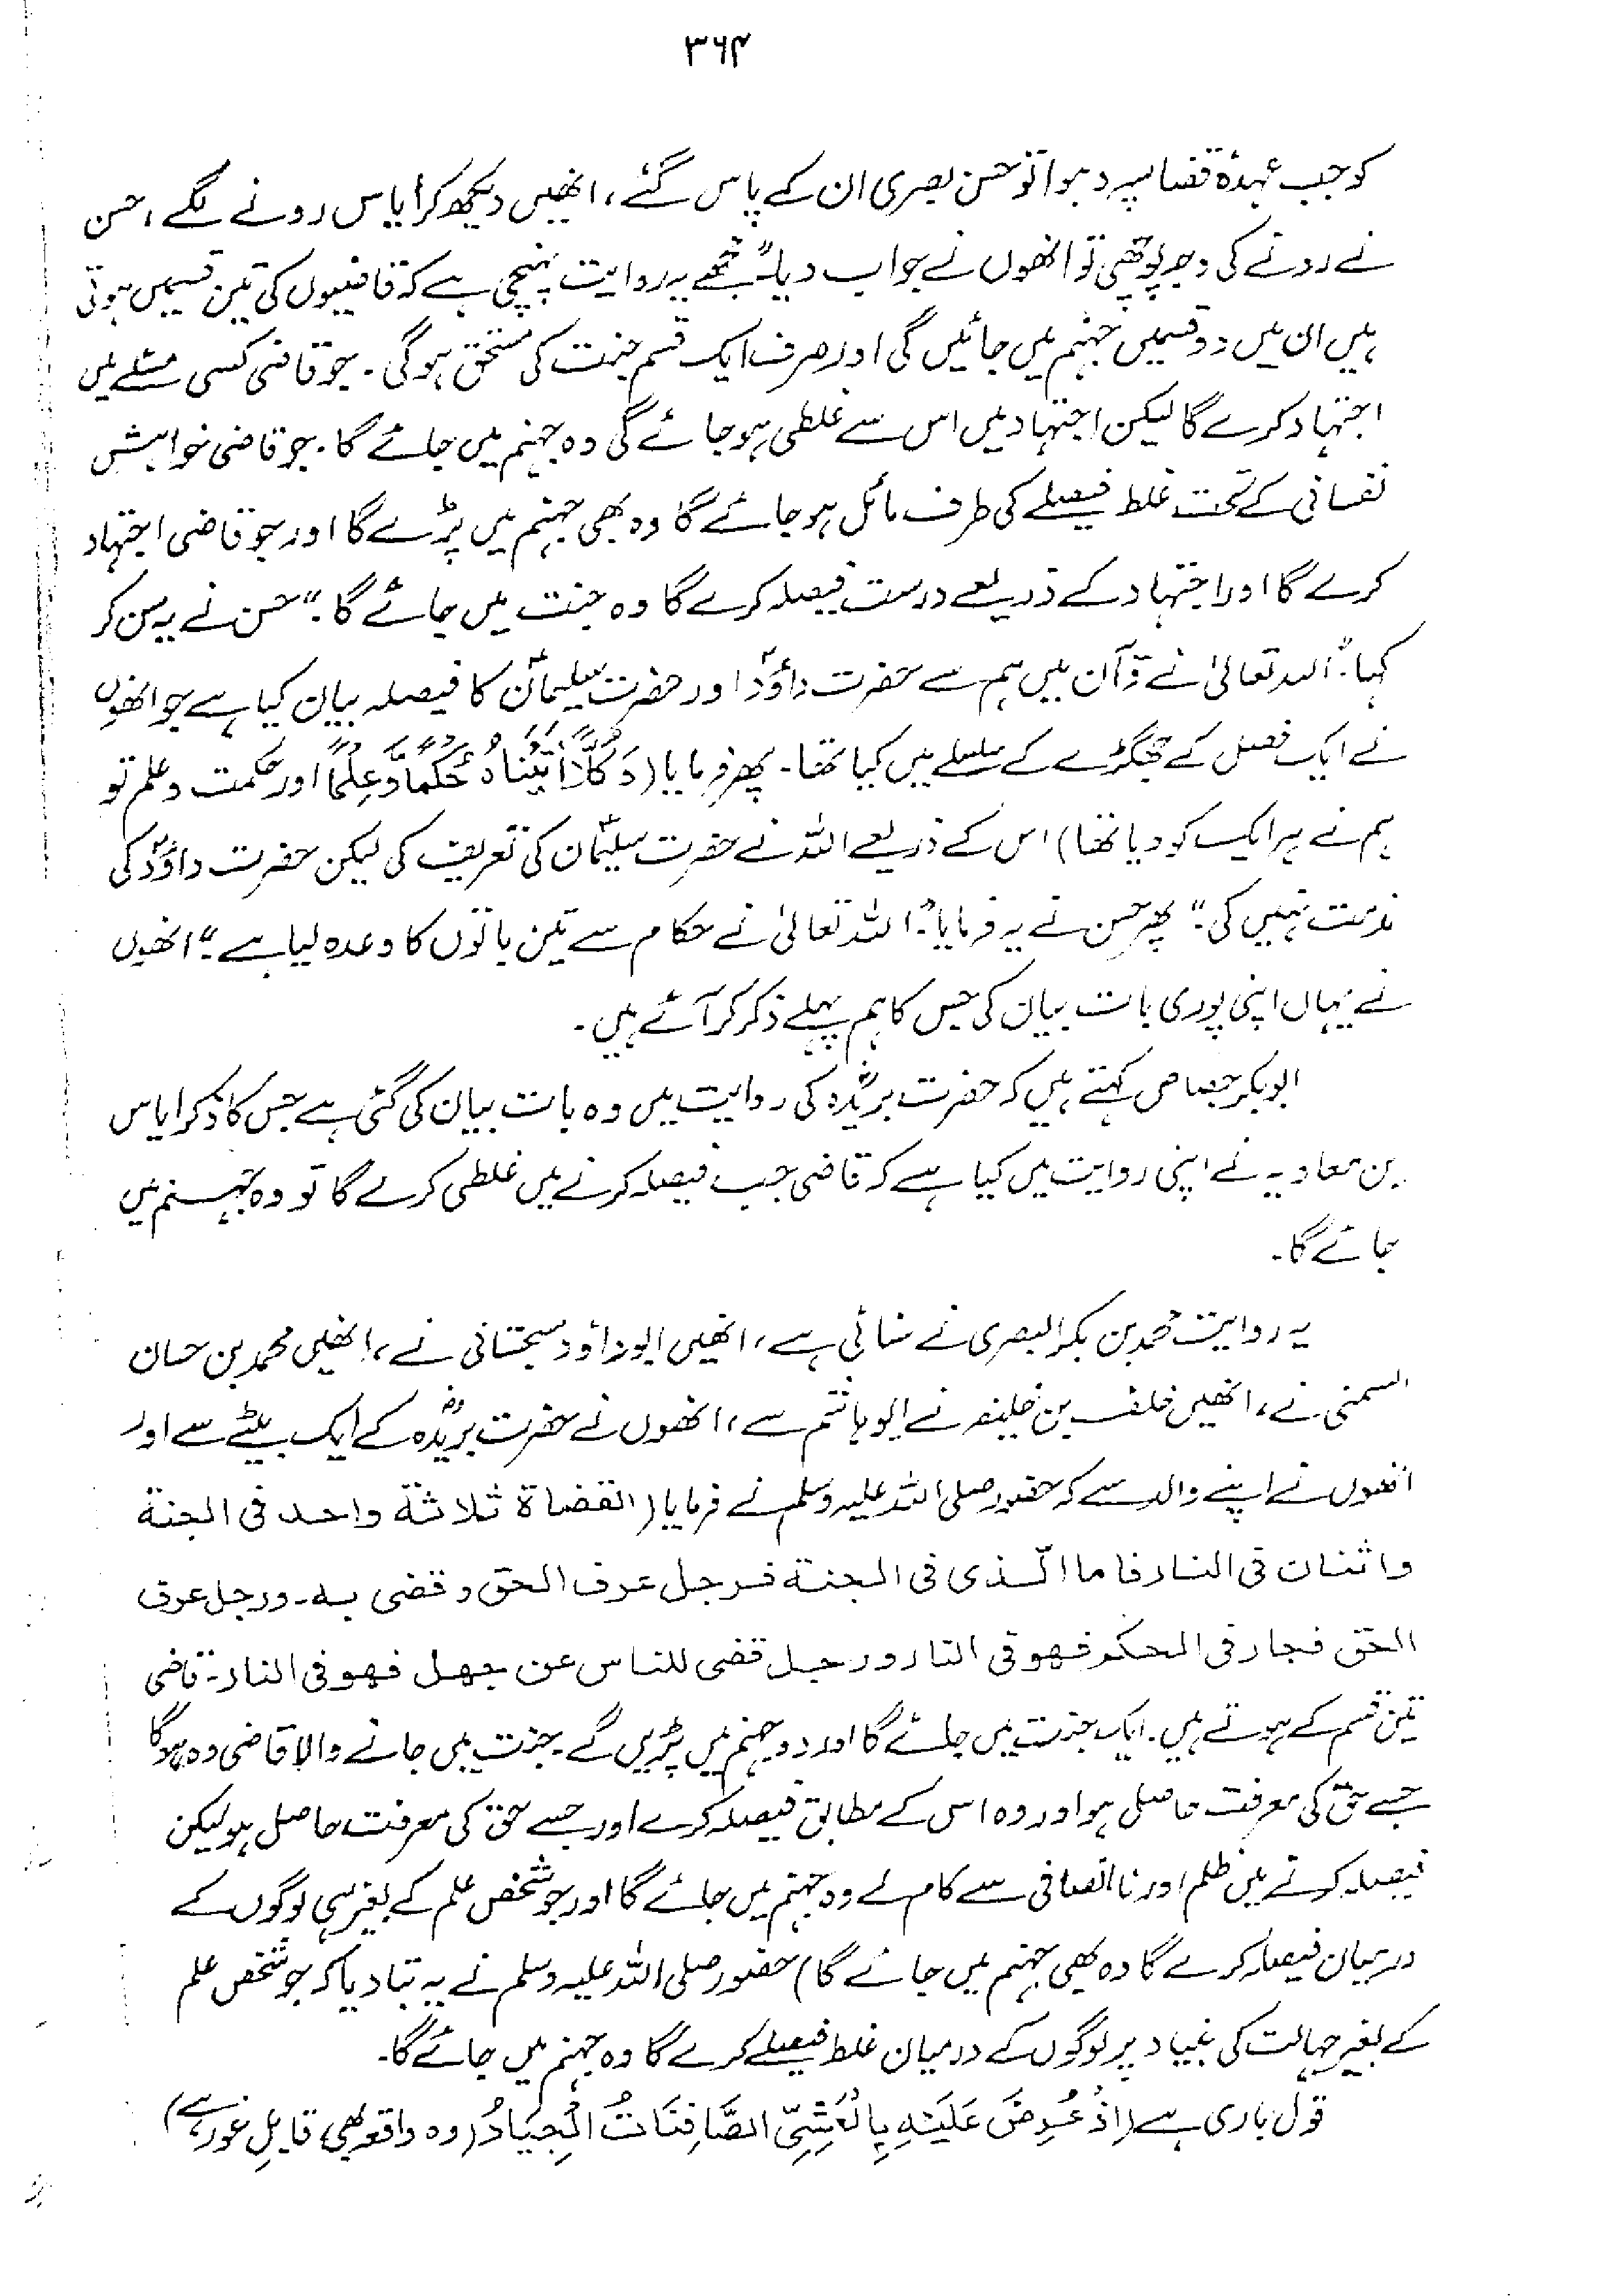 ۳۶۴
کو جب عہدۂ قضا سپرد ہوا تو حسن بصری ان کے پاس گئے، انھیں دیکھ کر ایاس رونے لگے، حسن
نے رونے کی وجہ پوچھی تو انھوں نے جواب دیا "مجھے یہ روایت پہنچی ہے کہ قاضیوں کی تین قسمیں ہوتی
ہیں ان میں دو قسمیں جہنم میں جائیں گی اور صرف ایک قسم جنت کی مستحق ہوگی۔ جو قاضی کسی مسئلے میں
اجتہاد کرے گا لیکن اجتہاد میں اس سے غلطی ہو جائے گی وہ جہنم میں جائے گا۔ جو قاضی خواہش
نفسانی کے تحت غلط فیصلے کی طرف مائل ہو جائے گا وہ بھی جہنم میں پڑے گا اور جو قاضی اجتہاد
کرے گا اور اجتہاد کے ذریعے درست فیصلہ کرے گا وہ جنت میں جائے گا۔" حسن نے یہ سن کر
کہا: "اللہ تعالیٰ نے قرآن میں ہم سے حضرت داؤدؑ اور حضرت سلیمانؑ کا فیصلہ بیان کیا ہے جو انھوں
نے ایک فصل کے جھگڑے کے سلسلے میں کیا تھا۔ پھر فرمایا (وَكُلًّا اٰتَيْنَاهُ حُكْمًا وَّعِلْمًا اور حکمت و علم تو
ہم نے ہر ایک کو دیا تھا) اس کے ذریعے اللہ نے حضرت سلیمانؑ کی تعریف کی لیکن حضرت داؤدؑ کی
مذمت نہیں کی۔" پھر حسن نے یہ فرمایا: "اللہ تعالیٰ نے حکام سے تین باتوں کا وعدہ لیا ہے" انھوں
نے یہاں اپنی پوری بات بیان کی جس کا ہم پہلے ذکر کر آئے ہیں۔
ابوبکر جصاص کہتے ہیں کہ حضرت بریدہؓ کی روایت میں وہ بات بیان کی گئی ہے جس کا ذکر ایاس
بن معاویہ نے اپنی روایت میں کیا ہے کہ قاضی جب فیصلہ کرنے میں غلطی کرے گا تو وہ جہنم میں
جائے گا۔
یہ روایت محمد بن بکر البصری نے سنائی ہے، انھیں ابوداؤد سجستانی نے، انھیں محمد بن حسان
السمتی نے، انھیں خلف بن خلیفہ نے ابو ہاشم سے، انھوں نے حضرت بریدہؓ کے ایک بیٹے سے اور
انھوں نے اپنے والد سے کہ حضور صلی اللہ علیہ وسلم نے فرمایا (القضاة ثلاثة واحد فى الجنة
واثنان فى النار فاما الّذى فى الجنة فرجل عرف الحق وقضى به۔ ورجل عرف
الحق فجار فى الحكم فهو فى النار ورجل قضى للناس عن جهل فهو فى النار۔ قاضی
تین قسم کے ہوتے ہیں۔ ایک جنت میں جائے گا اور دو جہنم میں پڑیں گے۔ جنت میں جانے والا قاضی وہ ہوگا
جسے حق کی معرفت حاصل ہو اور وہ اس کے مطابق فیصلہ کرے اور جسے حق کی معرفت حاصل ہو لیکن
فیصلہ کرنے میں ظلم اور ناانصافی سے کام لے وہ جہنم میں جائے گا اور جو شخص علم کے بغیر ہی لوگوں کے
درمیان فیصلہ کرے گا وہ بھی جہنم میں جائے گا) حضور صلی اللہ علیہ وسلم نے یہ بتا دیا کہ جو شخص علم
کے بغیر جہالت کی بنیاد پر لوگوں کے درمیان غلط فیصلے کرے گا وہ جہنم میں جائے گا۔
قول باری ہے (اِذْ عُرِضَ عَلَيْهِ بِالْعَشِيِّ الصَّافِنَاتُ الْجِيَادُ (وہ واقعہ بھی قابل غور ہے)